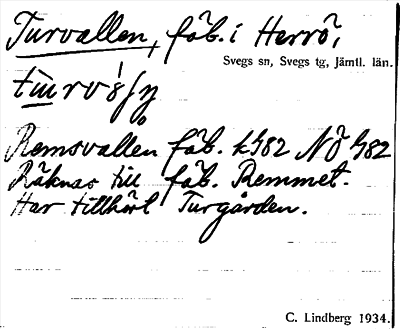 Turvallen, fäb. i Herrö,
Svegs sn, Svegs tg, Jämtl. län.
Remsvallen fäb. k982 NÖ 982
Räknas till fäb. Remmet.
Har tillhört Turgården.
C. Lindberg 1934.